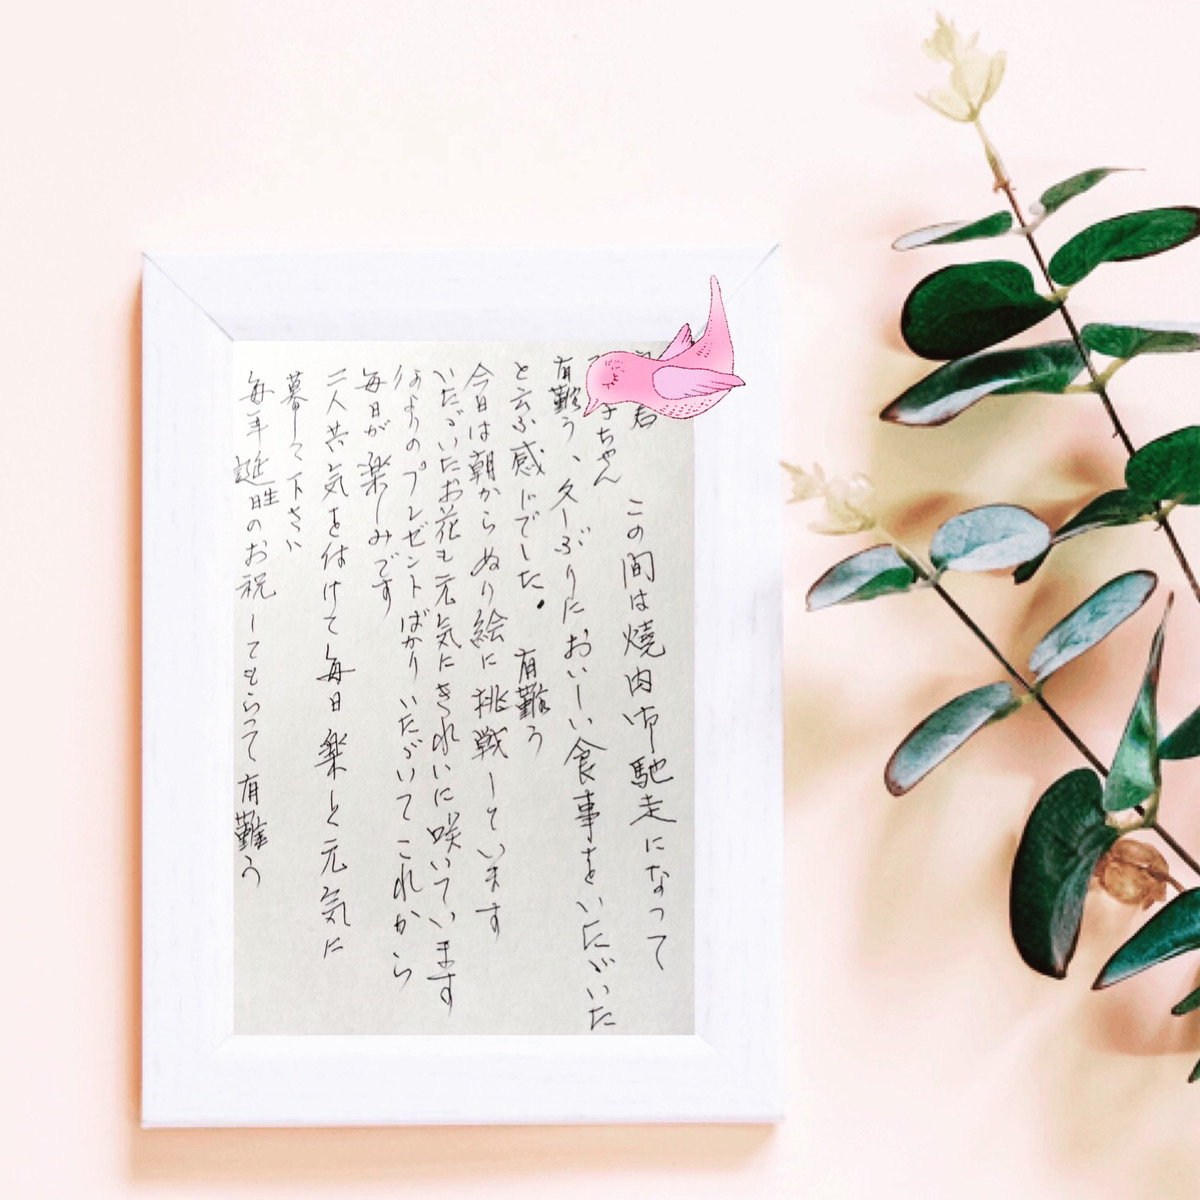 君
子ちゃん
この間は焼肉御馳走になって
有難う、久しぶりにおいしい食事をいただいた
と云ふ感じでした。有難う
今日は朝からぬり絵に挑戦しています
いただいたお花も元気にきれいに咲いています
何よりのプレゼントばかりいただいてこれから
毎日が楽しみです
二人共気を付けて毎日楽しく元気に
暮して下さい
毎年誕生日のお祝してもらって有難う